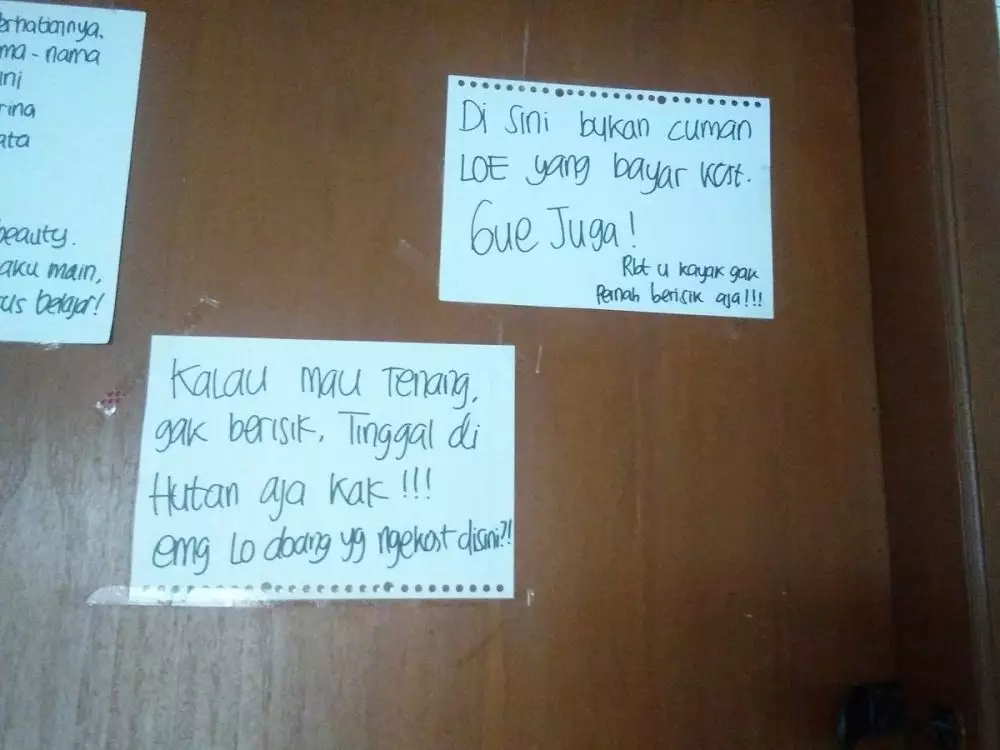 erhatiannya.
ma-nama
ini
rina
ata
beauty.
aku main,
us belajar!
Di sini bukan cuman
LOE yang bayar kost.
Gue Juga!
Rbt u kayak gak
Pernah berisik aja!!!
Kalau mau Tenang,
gak berisik, Tinggal di
Hutan aja kak!!!
emg Lo doang yg ngekost disini?!